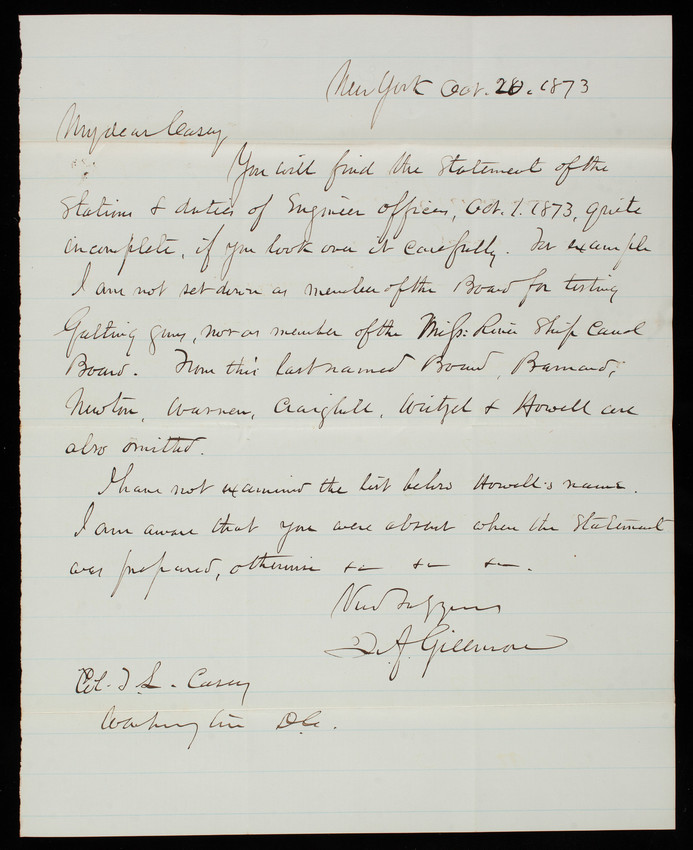 New York Oct. 20. 1873
My dear Casey
You will find the Statement of the
Stations & duties of Engineer officers, Oct. 1. 1873, quite
incomplete, if you look over it carefully. For example
I am not set down as member of the Board for testing
Gatling guns, nor as member of the Miss: River Ship Canal
Board. From this last named Board, Barnard,
Newton, Warren, Craighill, Weitzel & Howell are
also omitted.
I have not examined the list below Howell's name.
I am aware that you were absent when the Statement
was prepared, otherwise &c &c &c.
Very truly yours
Q. A. Gillmore
Col. T. L. Casey
Washington D.C.